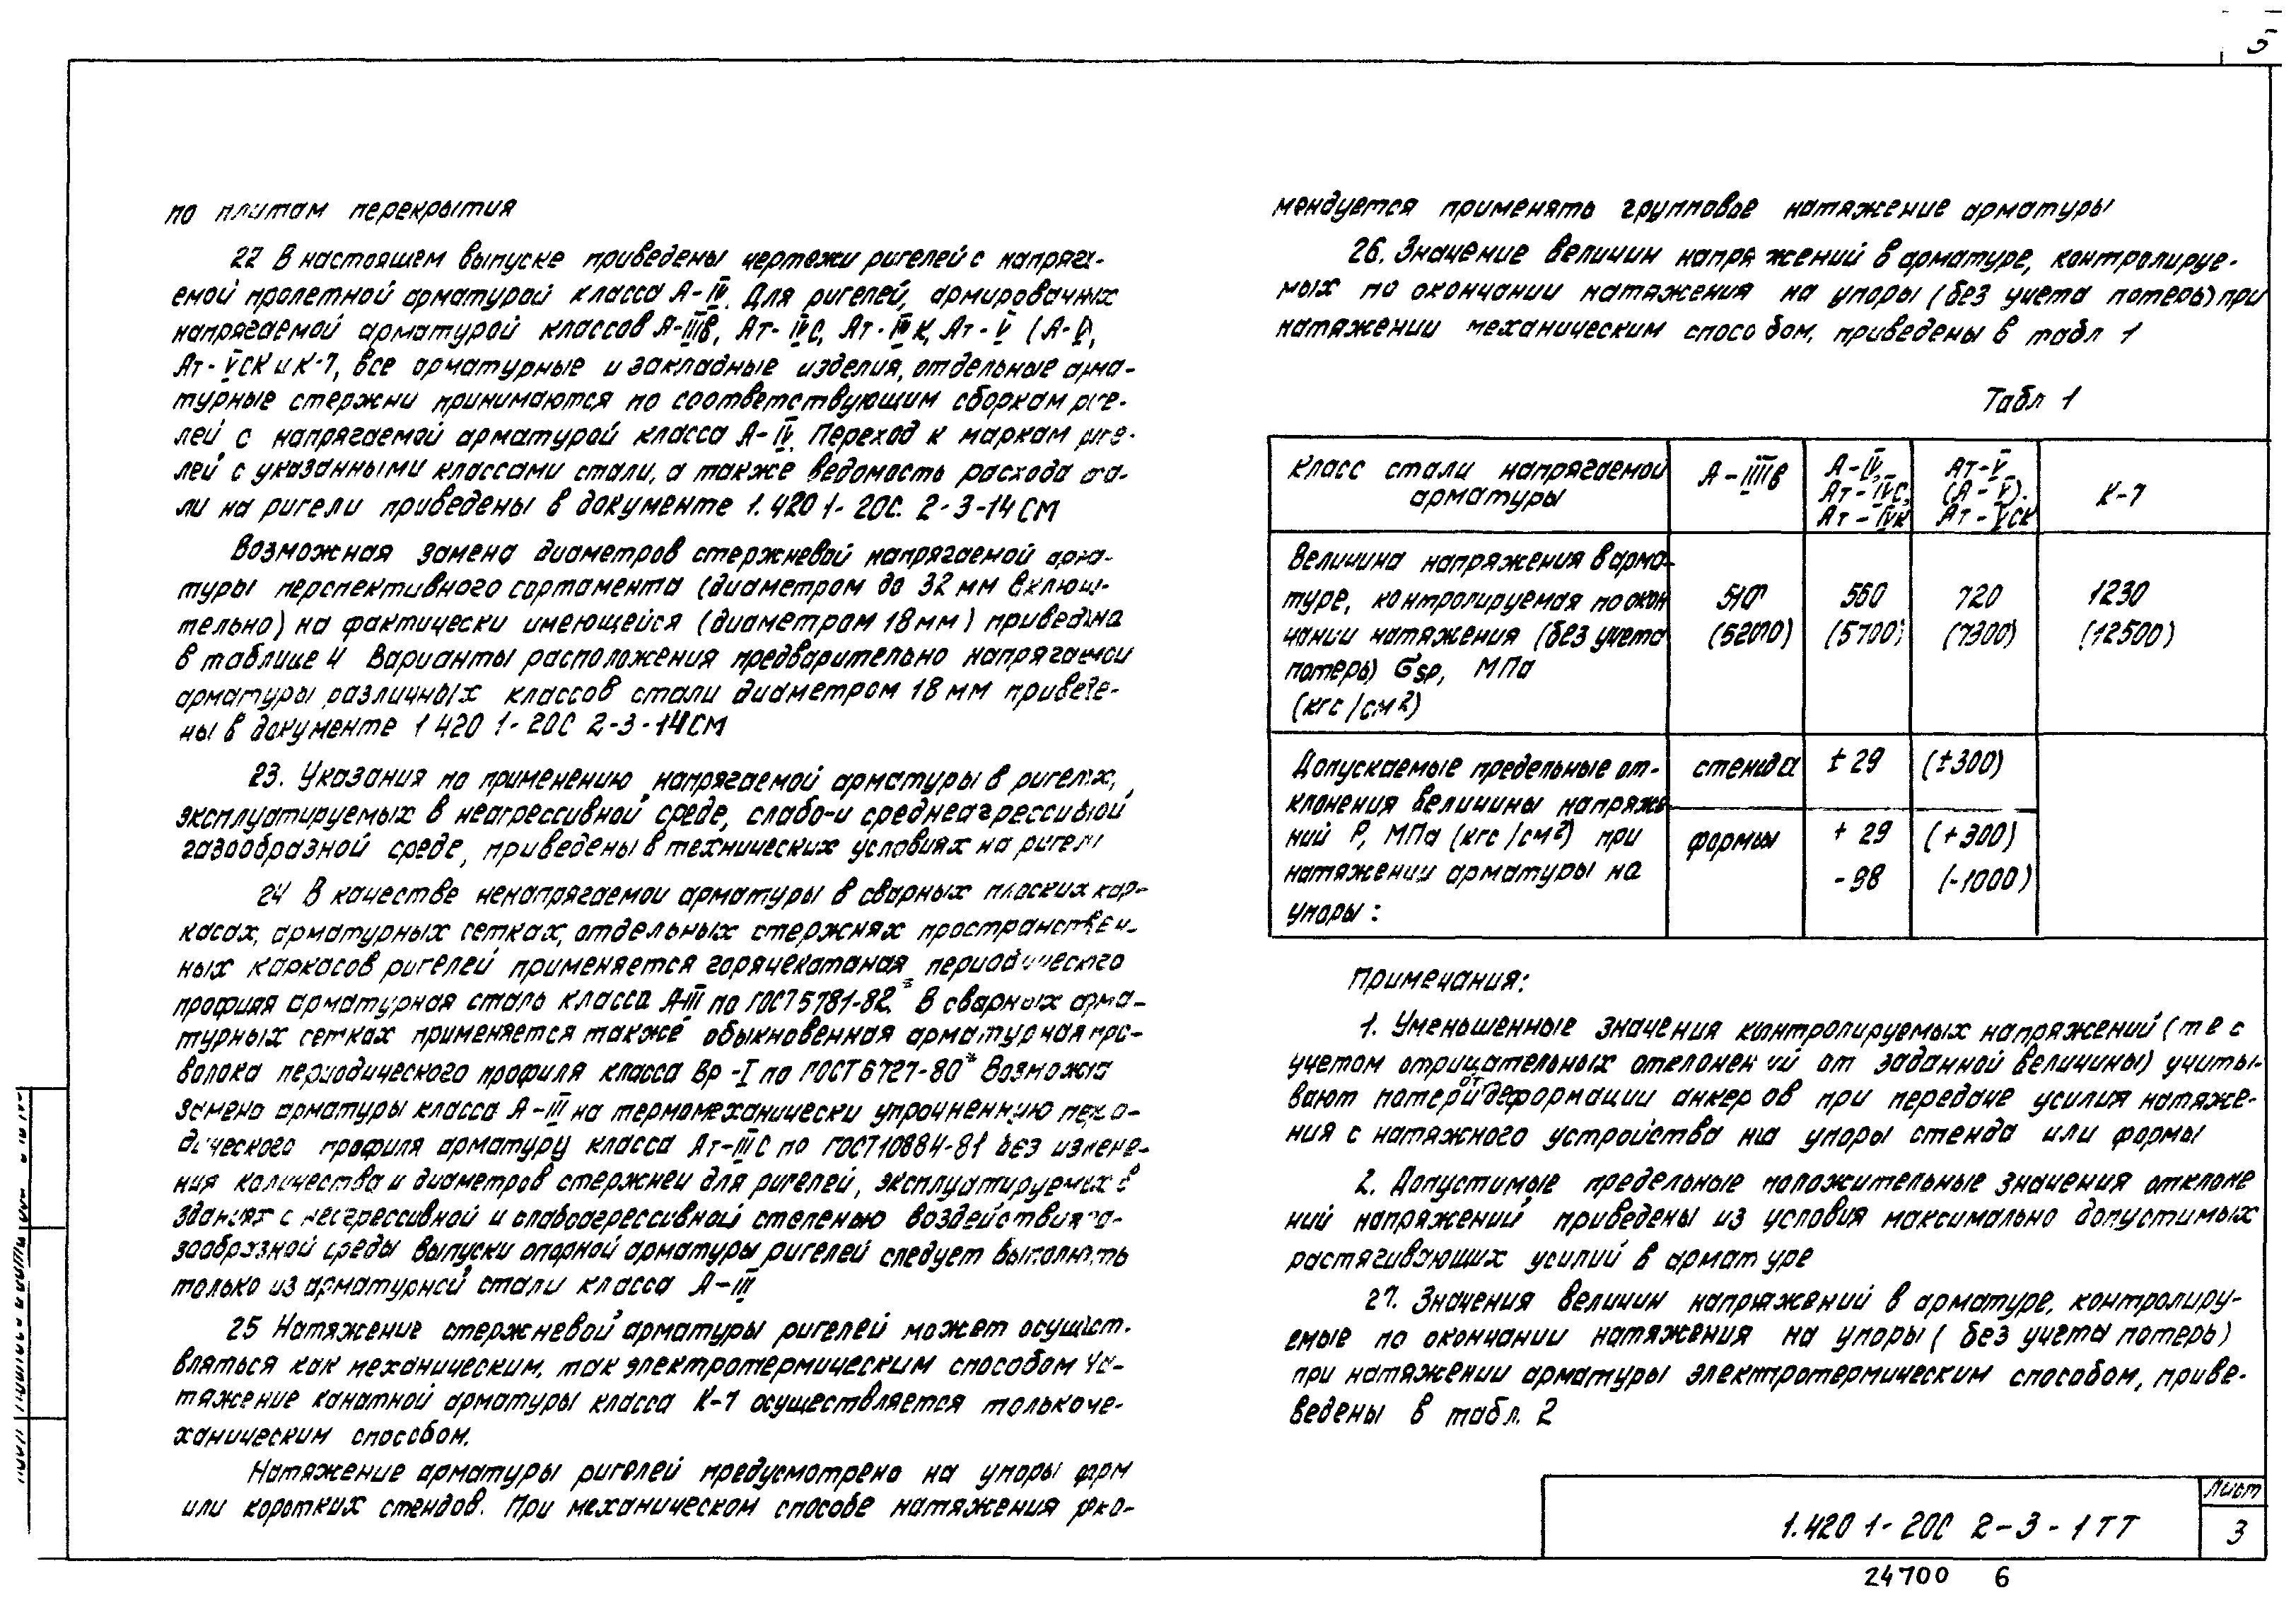 5
по плитам перекрытия
22 В настоящем выпуске приведены чертежи ригелей с напряга-
емой пролетной арматурой класса А-IV. Для ригелей, армированных
напрягаемой арматурой классов А-IIIв, Ат-IVС, Ат-IVК, Ат-V (А-V),
Ат-VСК и К-7, все арматурные и закладные изделия, отдельные арма-
турные стержни принимаются по соответствующим сборкам риге-
лей с напрягаемой арматурой класса А-IV. Переход к маркам риге-
лей с указанными классами стали, а также ведомость расхода ста-
ли на ригели приведены в документе 1.420 1-20С. 2-3-14СМ
Возможная замена диаметров стержневой напрягаемой арма-
туры перспективного сортамента (диаметром до 32 мм включи-
тельно) на фактически имеющейся (диаметрам 18 мм) приведена
в таблице 4 Варианты расположения предварительно напрягаемой
арматуры различных классов стали диаметром 18 мм приведе-
ны в документе 1 420 1-20С 2-3-14СМ
23. Указания по применению напрягаемой арматуры в ригелях,
эксплуатируемых в неагрессивной среде, слабо-и среднеагрессивной
газообразной среде, приведены в технических условиях на ригели
24 В качестве ненапрягаемой арматуры в сварных плоских кар-
касах, арматурных сетках, отдельных стержнях пространствен-
ных каркасов ригелей применяется горячекатаная периодического
профиля арматурная сталь класса А-III по ГОСТ 5781-82.* В сварных арма-
турных сетках применяется также обыкновенная арматурная про-
волока периодического профиля класса Вр-I по ГОСТ 6727-80* Возможна
замена арматуры класса А-III на термомеханически упрочненную перио-
дического профиля арматуру класса Ат-IIIС по ГОСТ 10884-81 без измене-
ния количества и диаметров стержней для ригелей, эксплуатируемых в
зданиях с неагрессивной и слабоагрессивной степенью воздействия га-
зообразной среды Выпуски опорной арматуры ригелей следует выполнять
только из арматурной стали класса А-III
25 Натяжение стержневой арматуры ригелей может осущест-
вляться как механическим, так электротермическим способом На-
тяжение канатной арматуры класса К-7 осуществляется только ме-
ханическим способом.
Натяжение арматуры ригелей предусмотрено на упоры форм
или коротких стендов. При механическом способе натяжения реко-
мендуется применять групповое натяжение арматуры
26. Значение величин напряжений в арматуре, контролируе-
мых по окончании натяжения на упоры (без учета потерь) при
натяжении механическим способом, приведены в табл 1
Табл 1
Класс стали напрягаемой арматуры
А-IIIв
А-IV, Ат-IVС, Ат-IVК
Ат-V (А-V). Ат-VСК
К-7
Величина напряжения в арма-
туре, контролируемая по окон
чании натяжения (без учета
потерь) σsp, МПа
(кгс/см2)
510 (5200)
560 (5700)
720 (7300)
1230 (12500)
Допускаемые предельные от-
клонения величины напряже
ний Р, МПа (кгс/см2) при
натяжении арматуры на
упоры:
стенда ±29 (±300)
формы +29 (+300)
-98 (-1000)
Примечания:
1. Уменьшенные значения контролируемых напряжений (т е с
учетом отрицательных отклонений от заданной величины) учиты-
вают потери от деформации анкеров при передаче усилия натяже-
ния с натяжного устройства на упоры стенда или формы
2. Допустимые предельные положительные значения отклоне
ний напряжений приведены из условия максимально допустимых
растягивающих усилий в арматуре
27. Значения величин напряжений в арматуре, контролиру-
емые по окончании натяжения на упоры (без учета потерь)
при натяжении арматуры электротермическим способом, приве-
ведены в табл. 2
1.420 1-20С 2-3-1ТТ
Лист
3
24700 6